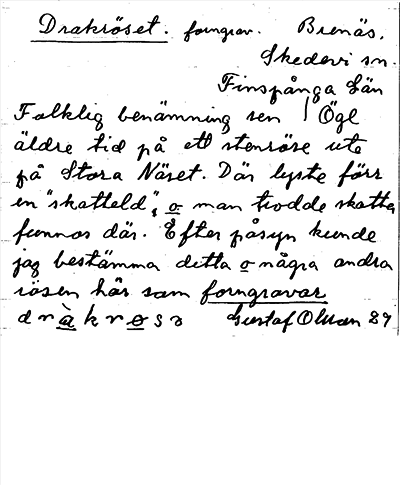 Drakröset. forngrav. Brenäs,
Skedevi sn.
Finspånga Län
Folklig benämning sen / Ögl
äldre tid på ett stenröse ute
på Stora Näset. Där lyste förr
en "skatteld", o man trodde skatter
funnos där. Efter påsyn kunde
jag bestämma detta o några andra
rösen här som forngravar
d r à k r ø s ɔ Gustaf Olsson 89